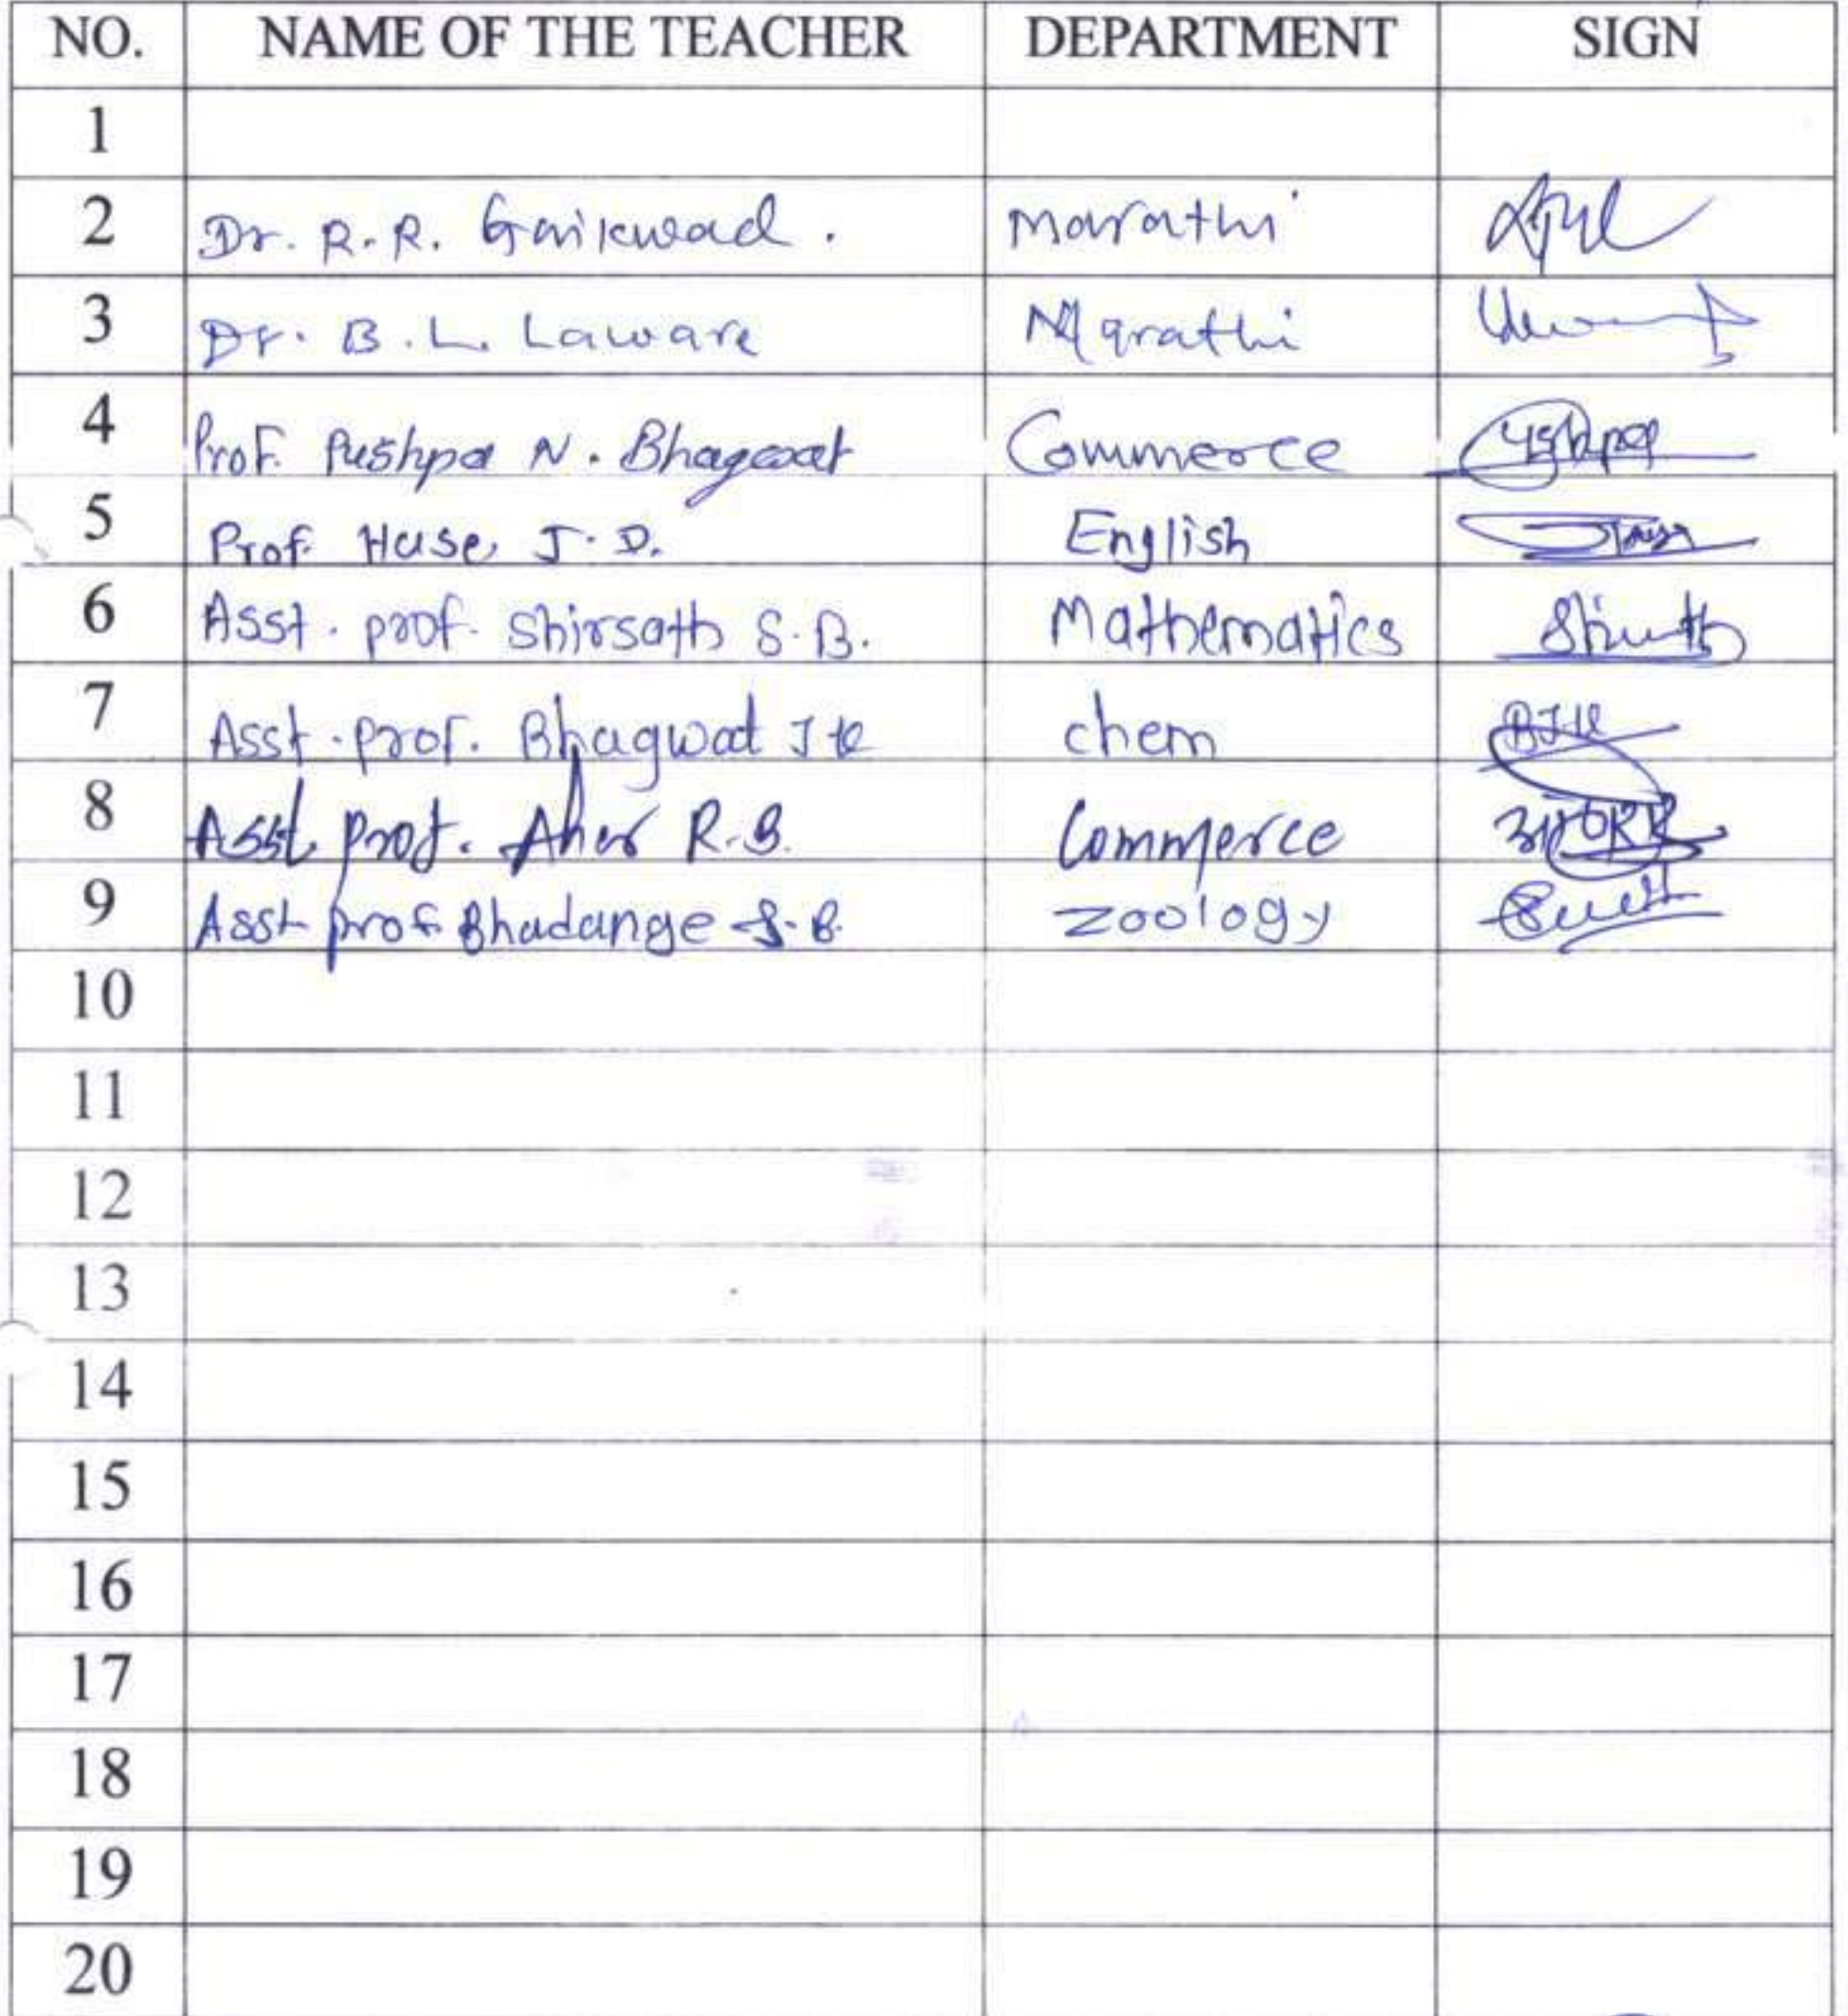 NO. NAME OF THE TEACHER DEPARTMENT SIGN
1
2 Dr. R.R. Gaikwad. Marathi
3 Dr. B.L. Laware Marathi
4 Prof. Pushpa N. Bhagwat Commerce
5 Prof. Hase J.D. English
6 Asst. prof. Shirsath S.B. Mathematics
7 Asst. prof. Bhagwat chem
8 Asst prof. Aher R.B. Commerce
9 Asst prof. Bhadange S.B. Zoology
10
11
12
13
14
15
16
17
18
19
20